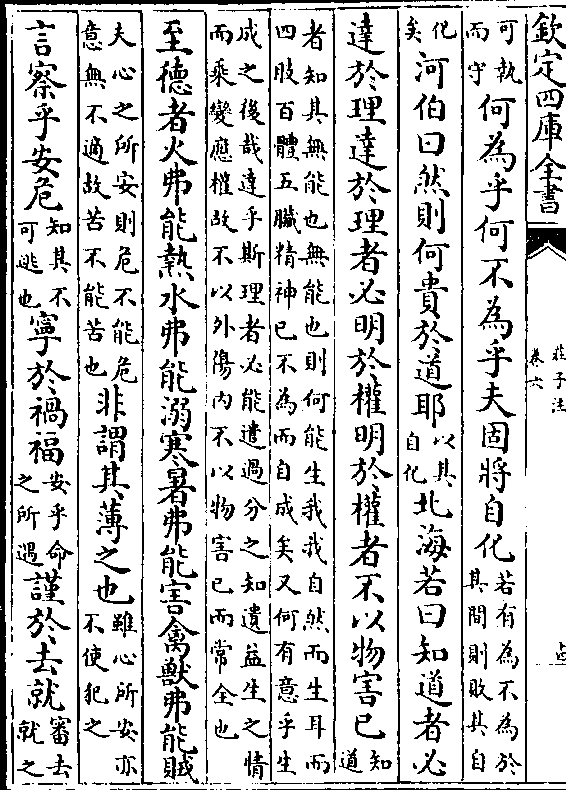 欽定四庫全書
莊子注
卷六
可執而守何為乎何不為乎夫固將自化若有為不為於其間則敗其自
化矣河伯曰然則何貴於道耶以其自化北海若曰知道者必
達於理達於理者必明於權明於權者不以物害已知道
者知其無能也無能也則何能生我我自然而生耳而四肢百體五臟精神已不為而自成矣又何有意乎生
成之後哉達乎斯理者必能遣過分之知遺益生之情而乘變應權故不以外傷内不以物害已而常全也
至德者火弗能熱水弗能溺寒暑弗能害禽獸弗能賊
夫心之所安則危不能危意無不適故苦不能苦也非謂其薄之也雖心所安亦不使犯之
言察乎安危知其不可逃也寧於禍福安乎命之所遇謹於去就審去就之